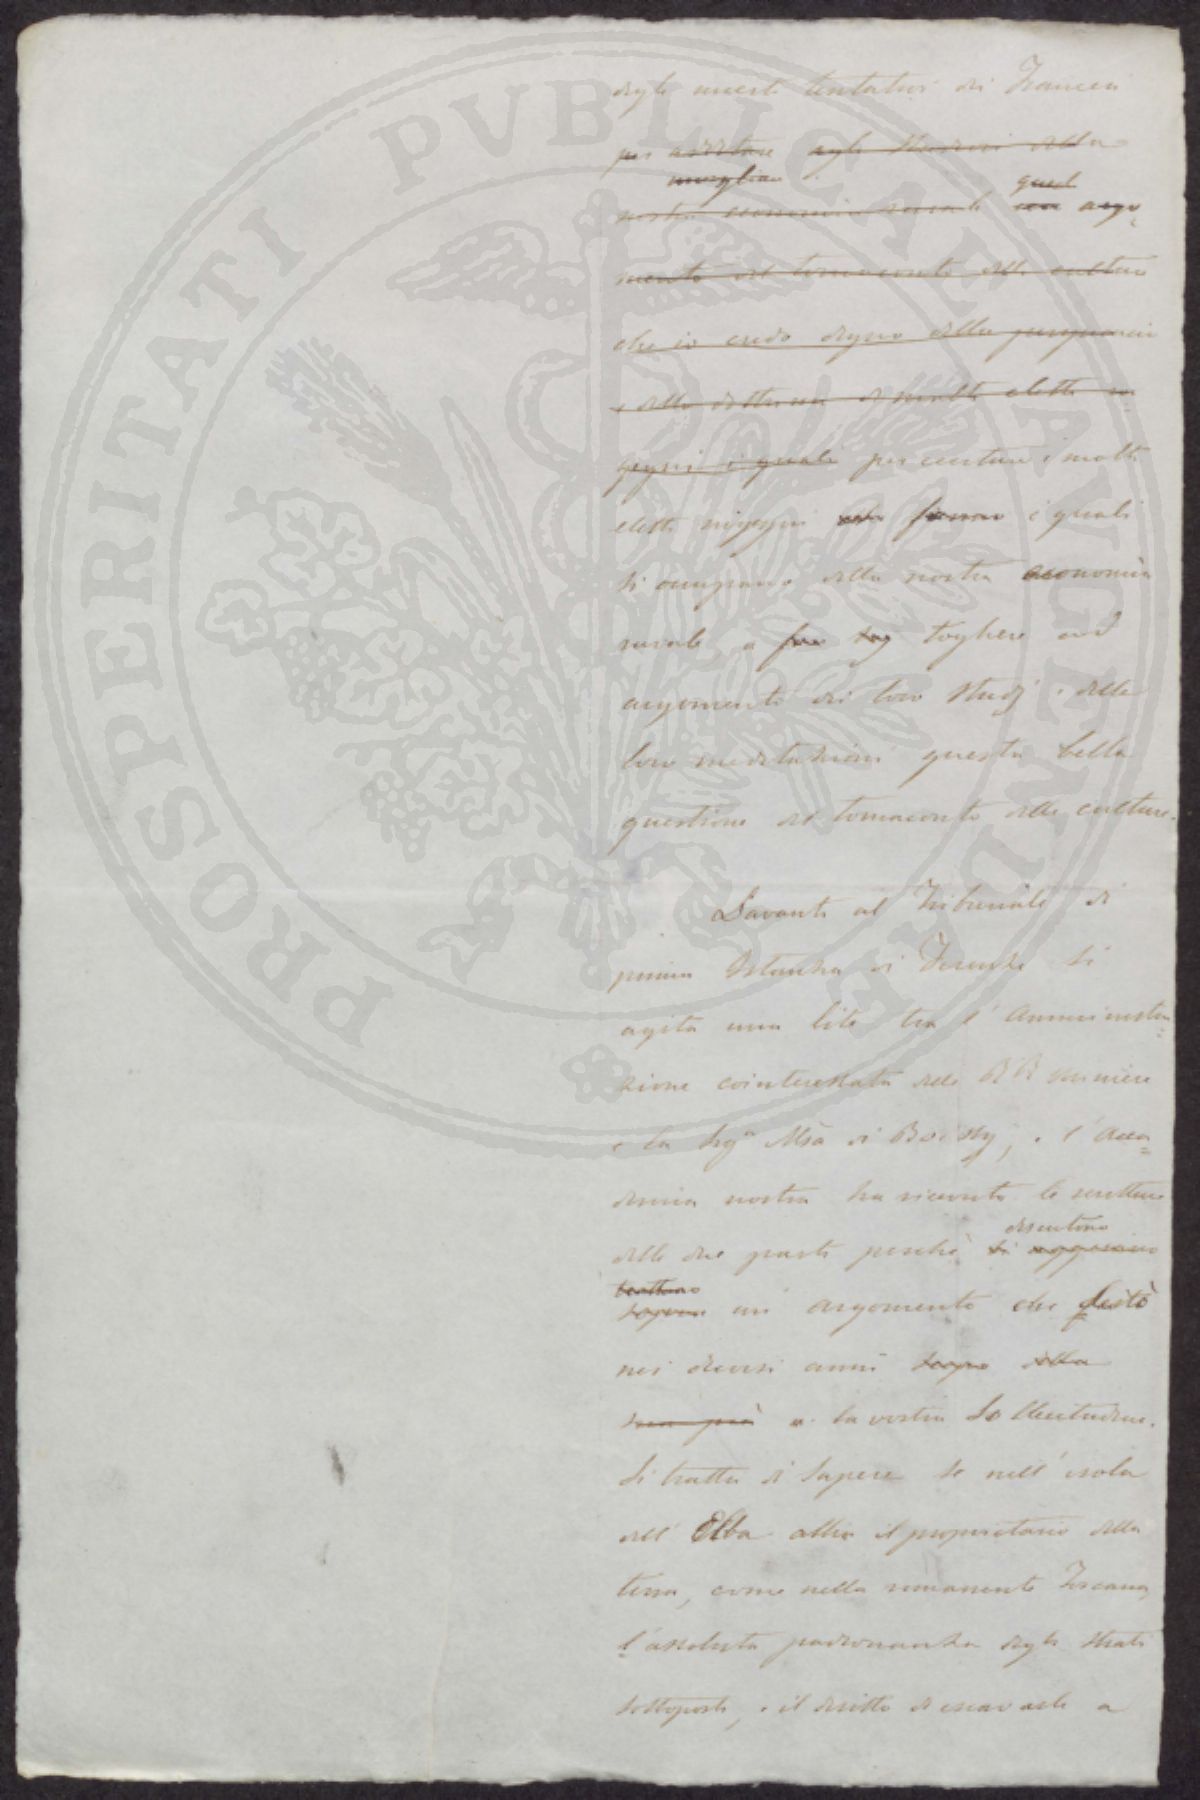 PROSPERITATI PVBLICAE AVGENDAE
degli tentativi dei Francesi
per additare agli Studiosi della
nostra economia rurale quel argo-
mento del tornaconto delle culture
che io credo degno della
e della dottrina di molti eletti in-
gegni i quali per eccitare i molti
eletti ingegni i quali
si occupano della nostra economia
rurale, a togliere ad
argomento dei loro studj e delle
loro meditazioni questa bella
questione del tornaconto delle culture.
Davanti al Tribunale di
prima Istanza di Firenze si
agita una lite tra l'Amministra-
zione cointeressata delle RR miniere
e la Sigra di Boissy, e l'Acca-
demia nostra ha ricevuto le scritture
discutono
delle due parti perchè si
un argomento che destò
nei decorsi anni della
sua più la vostra Sollecitudine.
Si tratta di Sapere se nell'isola
dell'Elba abbia il proprietario della
terra, come nella rimanente Toscana,
l'assoluta padronanza degli strati
sottoposti, e il diritto di escavarli a